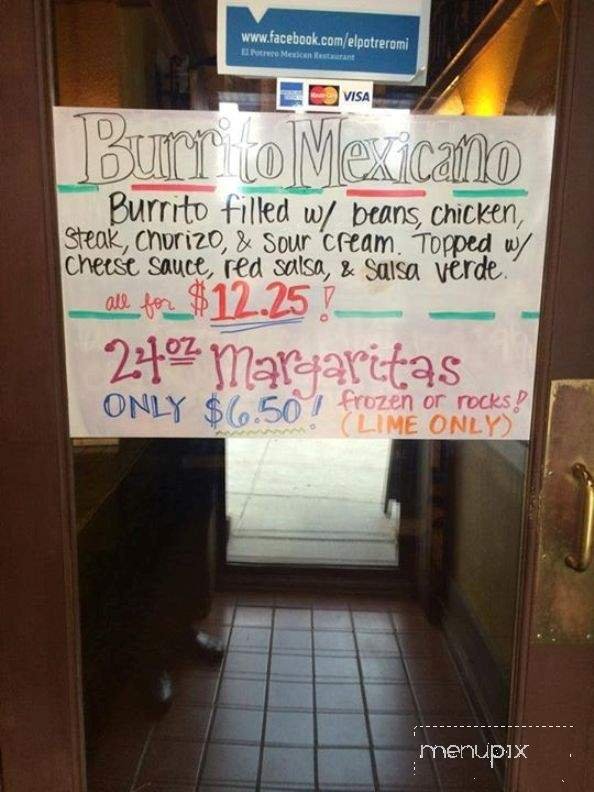 www.facebook.com/elpotreromi
El Potrero Mexican Restaurant
AMERICAN EXPRESS MasterCard VISA
Burrito Mexicano
Burrito filled w/ beans, chicken,
steak, chorizo, & sour cream. Topped w/
cheese sauce, red salsa, & salsa verde.
all for $12.25!
24oz Margaritas
ONLY $6.50! frozen or rocks!
(LIME ONLY)
menupix